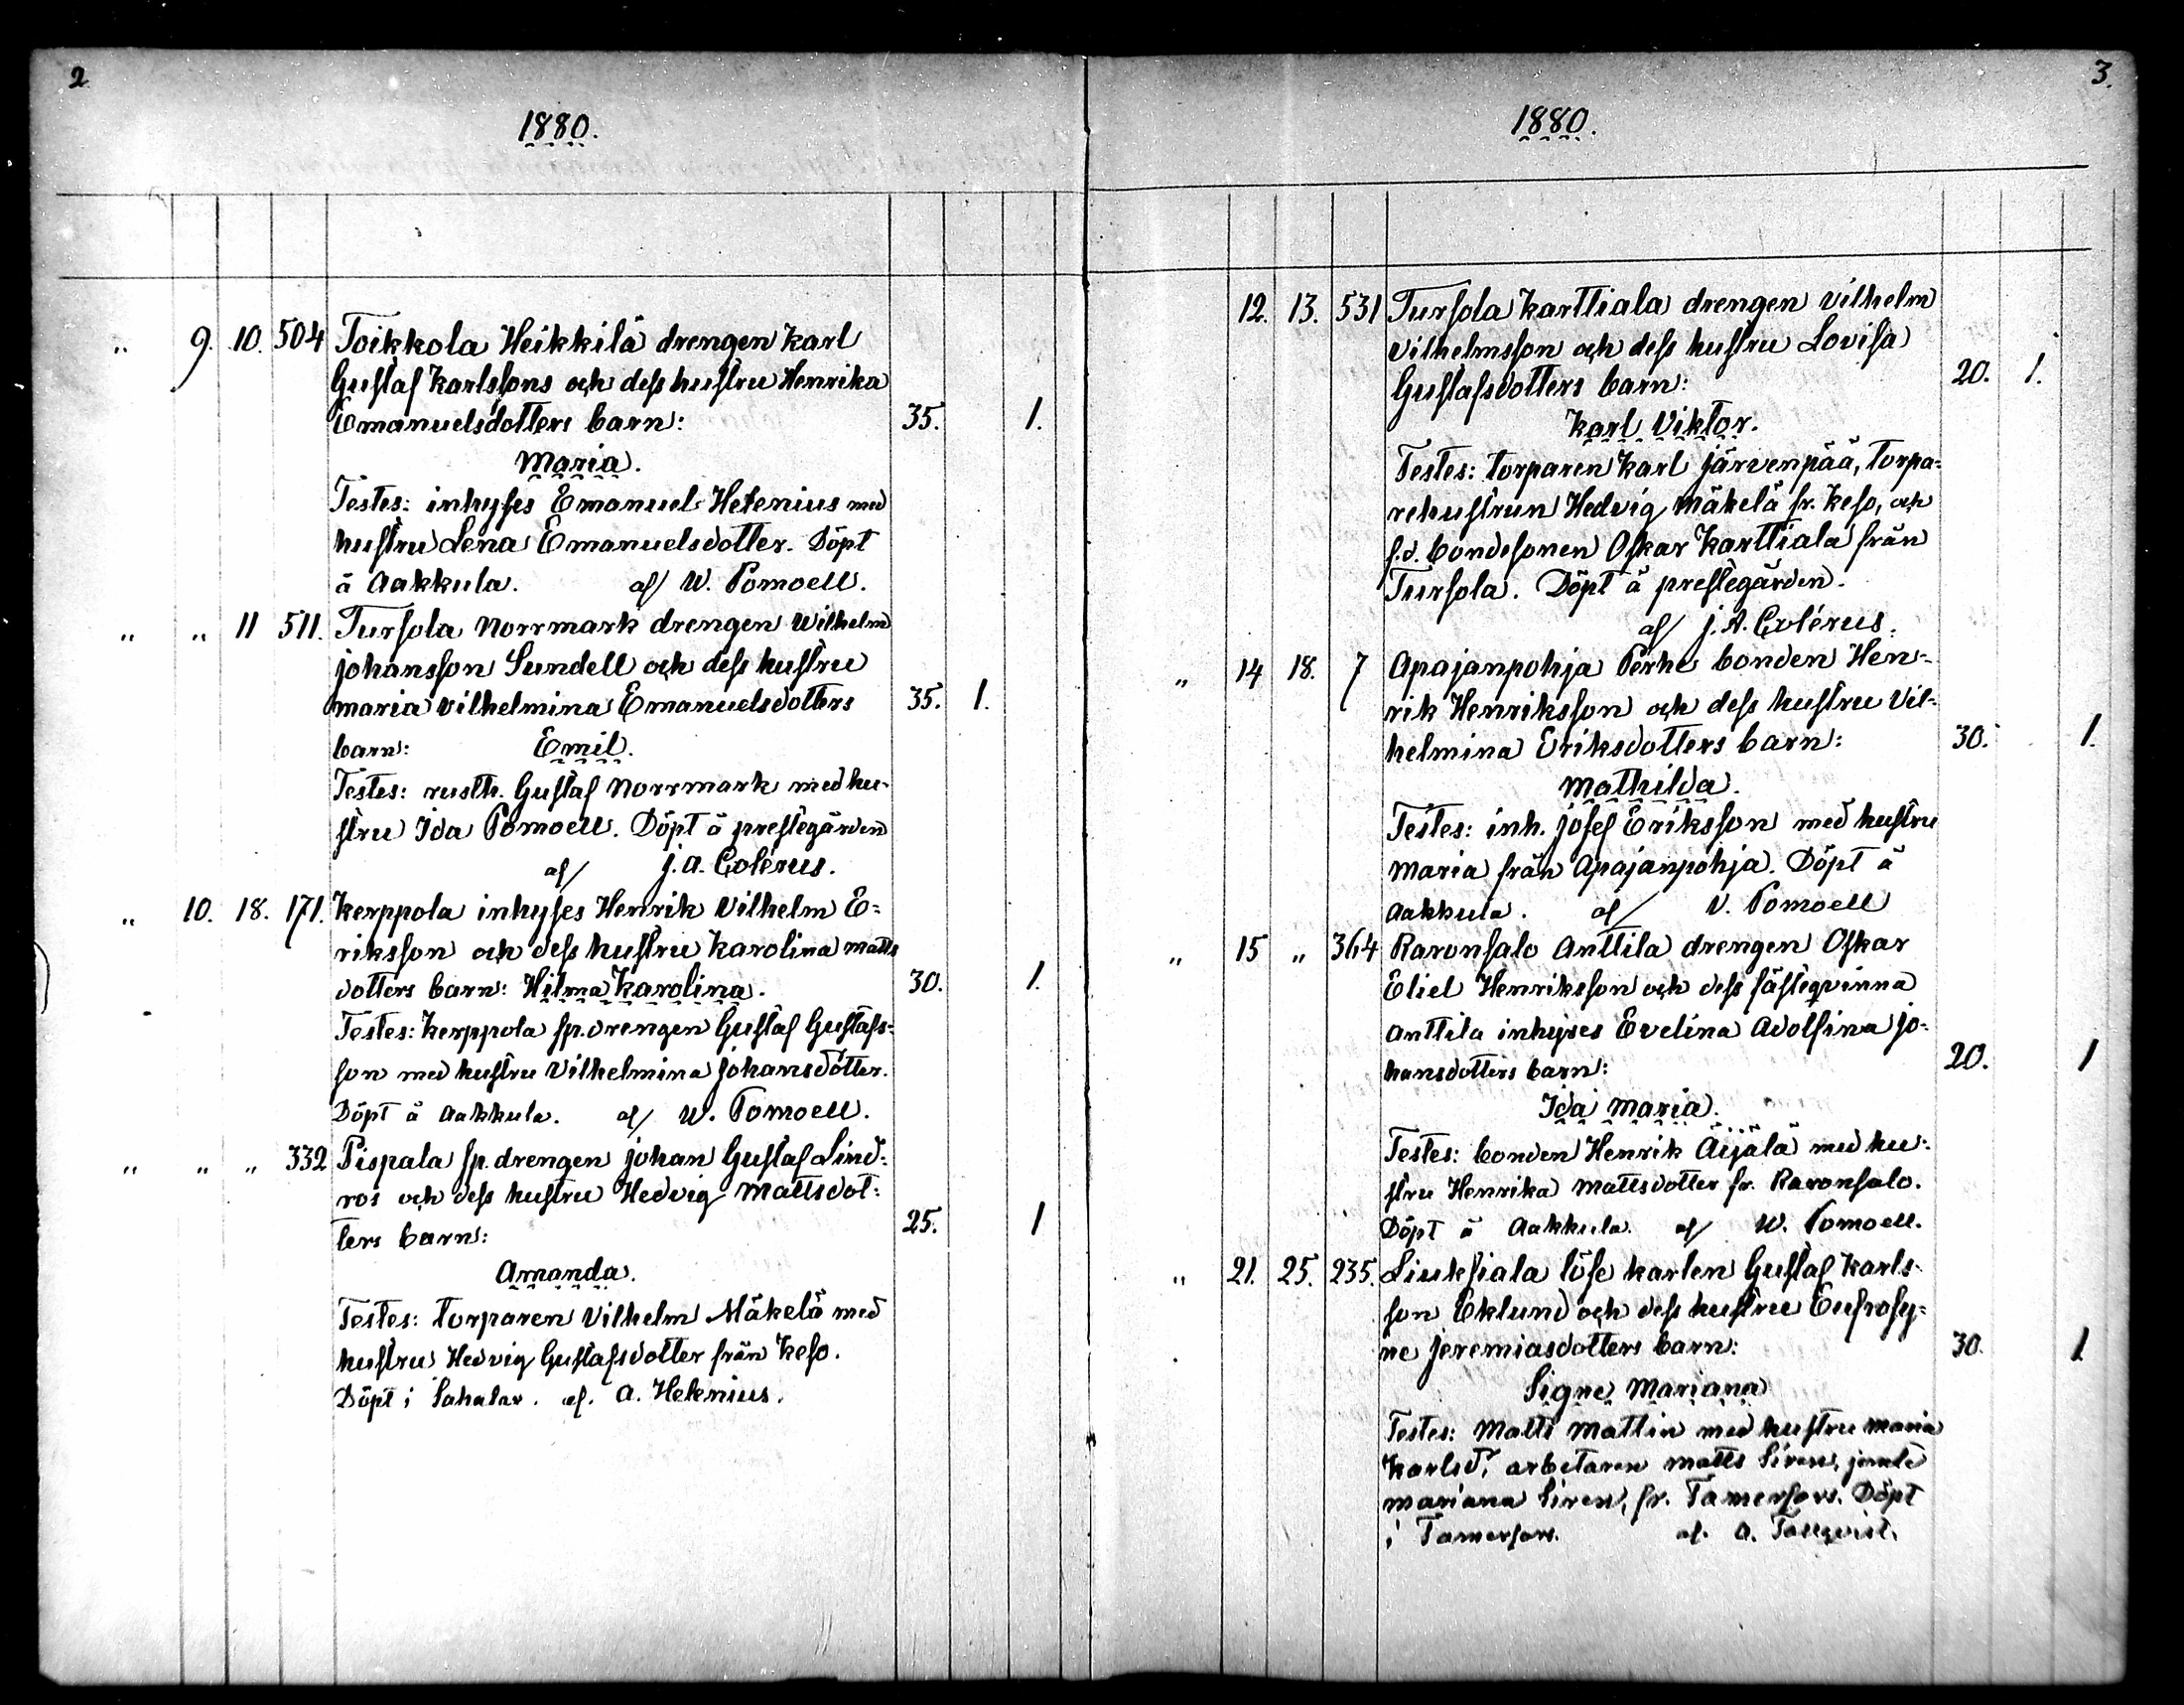 2
1880.
„ 9. 10. 504 Toikkola Heikkilä drengen Karl
Gustaf Karlssons och dess hustru Henrika
Emanuelsdotters barn: 35. 1.
Maria.
Testes: inhyses Emanuel Helenius med
hustru Lena Emanuelsdotter. Döpt
å Aakkula. af W. Pomoell.
„ „ 11 511. Tursola Norrmark drengen Wilhelm
Johansson Sundell och dess hustru
Maria Vilhelmina Emanuelsdotters 35. 1.
barn: Emil.
Testes: rusth. Gustaf Norrmark med hu-
stru Ida Pomoell. Döpt å prestegården
af J. A. Colérus.
„ 10. 18. 171. Kerppola inhyses Henrik Vilhelm E-
riksson och dess hustru Karolina Matts
dotters barn: Hilma Karolina. 30. 1.
Testes: Kerppola sp. drengen Gustaf Gustafs-
son med hustru Vilhelmina Johansdotter.
Döpt å Aakkula. af W. Pomoell.
„ „ „ 332 Pispala sp. drengen Johan Gustaf Lind-
ros och dess hustru Hedvig Mattsdot-
ters barn: 25. 1
Amanda.
Testes: torparen Vilhelm Mäkelä med
hustru Hedvig Gustafsdotter från Keso.
Döpt i Sahalax. af. A. Helenius.
3.
1880.
12. 13. 531 Tursola Karttiala drengen Vilhelm
Vilhelmsson och dess hustru Lovisa
Gustafsdotters barn: 20. 1.
Karl Viktor.
Testes: torparen Karl Järvenpää, torpa-
rehustrun Hedvig Mäkelä fr. Keso, och
f.d. bondesonen Oskar Karttiala från
Tursola. Döpt å prestegården.
af J. A. Colérus.
„ 14 18. 7 Apajanpohja Perhe bonden Hen-
rik Henriksson och dess hustru Vil-
helmina Eriksdotters barn: 30. 1.
Mathilda.
Testes: inh. Josef Eriksson med hustru
Maria från Apajanpohja. Döpt å
Aakkula. af V. Pomoell
„ 15 „ 364 Raronsalo Anttila drengen Oskar
Eliel Henriksson och dess fästeqvinna
Anttila inhyses Evelina Adolfina Jo-
hansdotters barn: 20. 1
Ida Maria.
Testes: bonden Henrik Äijälä med hu-
stru Henrika Mattsdotter fr. Raronsalo.
Döpt å Aakkula. af W. Pomoell.
„ 21. 25. 235. Liuksiala löse karlen Gustaf Karls-
son Eklund och dess hustru Eufrosy-
ne Jeremiasdotters barn: 30. 1
Signe Mariana
Testes: Matts Mattin med hustru Maria
Karlsd:r arbetaren Matts Siren, jemte
Mariana Siren, fr. Tamerfors. Döpt
i Tamerfors. af. A. Tallqvist.